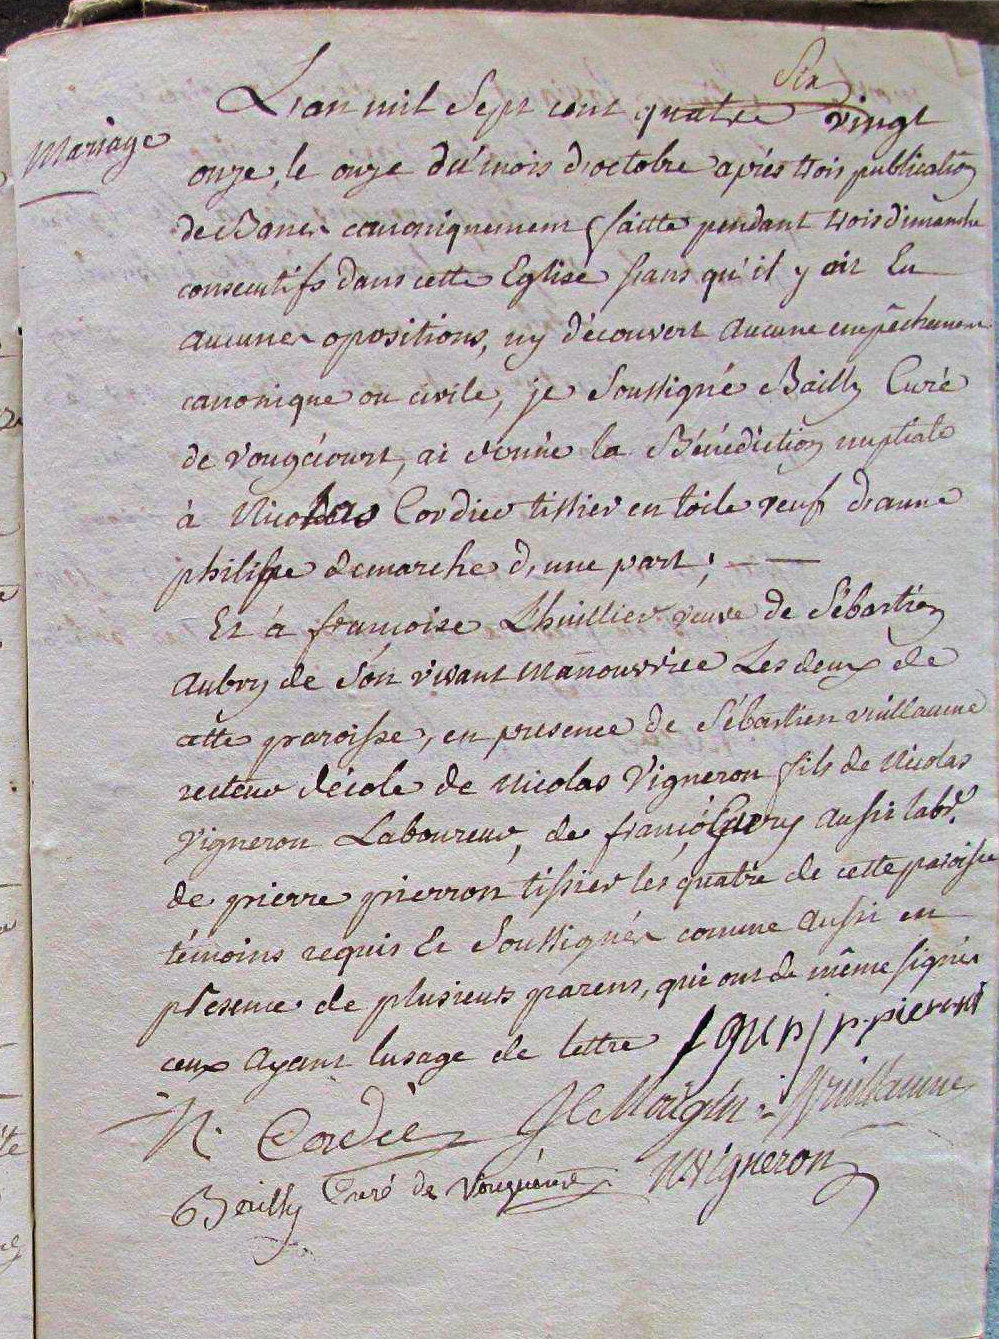 Six
L'an mil Sept cent quatre vingt
Mariage
onze, le onze du mois d'octobre après trois publication
de Banes canoniquement faitte pendant trois dimanche
consecutifs dans cette Eglise sans qu'il y ait Eu
aucunes opositions, ny découvert aucune empêchement
canonique ou civile, je Soussigné Bailly Curé
de vougécourt, ai donné la Bénédiction nuptiale
à Nicolas Cordier tissier en toile veuf d'anne
philippe demarche d'une part;
Et à françoise Lhuillier veuve de Sébastien
Aubry de son vivant Manouvrier Les deux de
cette paroisse, en presence de Sébastien vuillaume
recteur d'école de Nicolas Vigneron fils de Nicolas
Vigneron Laboureur, de françois aussi labr.
de pierre pierron tissier les quatre de cette paroisse
témoins requis Et Soussignés comme aussi en
présence de plusieurs parens, qui ont de même signés
ceux ayant lusage de lettre p. pierron
N. Cordié Vuillaume
Bailly Curé de Vougécourt N Vigneron